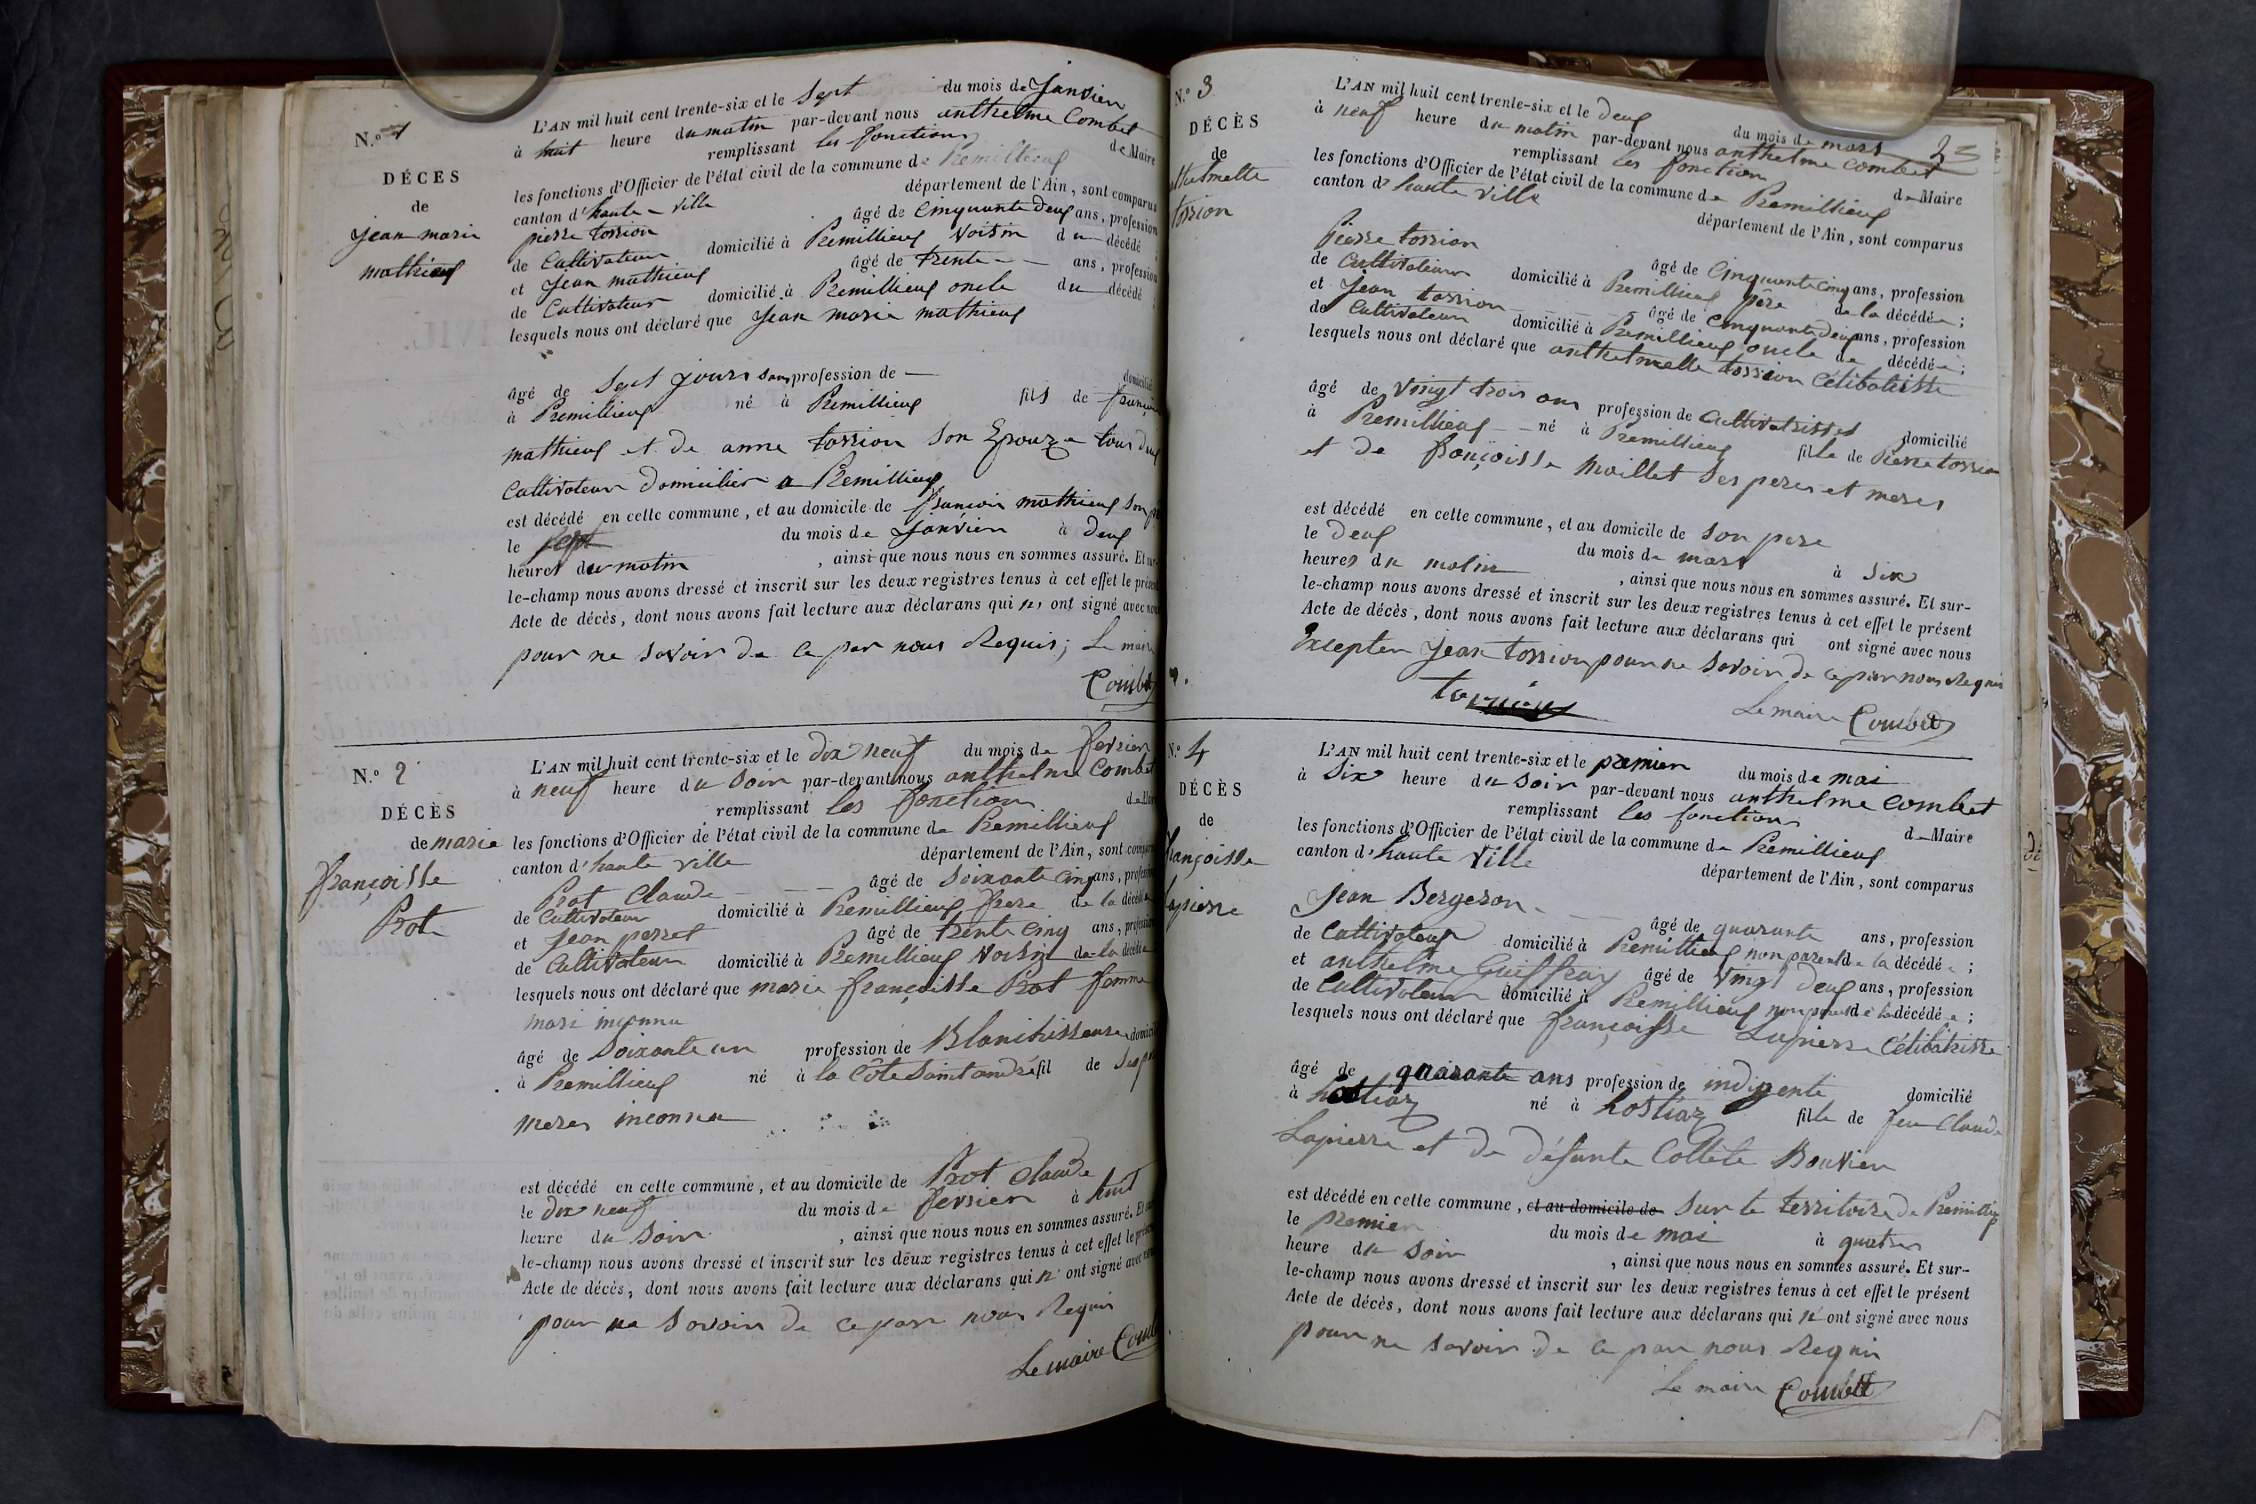 N.o 1
DÉCES
de
jean marie
mathieux
L'AN mil huit cent trente-six et le sept du mois de janvier
à huit heure du matin par-devant nous anthelme Combet
remplissant les fonctions de Maire
les fonctions d'Officier de l'état civil de la commune de Premillieux
canton d'haute-ville département de l'Ain, sont comparus
pierre torrion âgé de Cinquante deux ans, profession
de Cultivateur domicilié à Premillieux voisin du décédé
et jean mathieux âgé de trente ans, profession
de Cultivateur domicilié à Premillieux oncle du décédé
lesquels nous ont déclaré que jean marie mathieux
âgé de sept jours sans profession de — domicilié
à Premillieux né à Premillieux fils de françois
mathieux et de anne torrion son Epouze tous deux
Cultivateur domicilier a Premillieux
est décédé en cette commune, et au domicile de françois mathieux son
le sept du mois de janvier à deux
heures du matin, ainsi que nous nous en sommes assuré. Et sur-
le-champ nous avons dressé et inscrit sur les deux registres tenus à cet effet le présent
Acte de décès, dont nous avons fait lecture aux déclarans qui n' ont signé avec nous
pour ne savoir de ce par nous Requis; Le maire
Combet
N.o 2
DÉCÈS
de marie
françoisse
Prot
L'AN mil huit cent trente-six et le dix neuf du mois de fevrier
à neuf heure du soir par-devant nous anthelme Combet
remplissant les fonction de
les fonctions d'Officier de l'état civil de la commune de Premillieux
canton d'haute ville département de l'Ain, sont comparus
Prot Claude âgé de soixante cinq ans, profession
de Cultivateur domicilié à Premillieux frere de la décédée
et jean perret âgé de trente cinq ans, profession
de Cultivateur domicilié à Premillieux voisin de la décédée
lesquels nous ont déclaré que marie françoisse Prot femme
mari inconnu
âgé de soixante un profession de Blanchisseuse domicilié
à Premillieux né à la Côte Saint andré fil de ses
meres inconnu
est décédé en cette commune, et au domicile de Prot Claude
le dix neuf du mois de fevrier à huit
heure du soir, ainsi que nous nous en sommes assuré. Et
le-champ nous avons dressé et inscrit sur les deux registres tenus à cet effet le présent
Acte de décès, dont nous avons fait lecture aux déclarans qui n' ont signé avec nous
pour ne savoir de ce par nous Requis
Le maire Combet
23
N.o 3
DÉCÈS
de
anthelmette
torrion
L'AN mil huit cent trente-six et le deux du mois de mars
à neuf heure du matin par-devant nous anthelme Combet
remplissant les fonction de Maire
les fonctions d'Officier de l'état civil de la commune de Premillieux
canton d'haute ville département de l'Ain, sont comparus
pierre torrion âgé de Cinquante cinq ans, profession
de Cultivateur domicilié à Premillieux père de la décédée;
et jean torrion âgé de Cinquante deux ans, profession
de Cultivateur domicilié à Premillieux oncle de décédée;
lesquels nous ont déclaré que anthelmette torrion Célibatisse
âgé de vingt trois ans profession de Cultivatrisse domicilié
à Premillieux né à Premillieux fille de Pierre torrion
et de françoisse Maillet ses peres et meres
est décédé en cette commune, et au domicile de son pere
le deux du mois de mars à six
heures du matin, ainsi que nous nous en sommes assuré. Et sur-
le-champ nous avons dressé et inscrit sur les deux registres tenus à cet effet le présent
Acte de décès, dont nous avons fait lecture aux déclarans qui ont signé avec nous
Excepter jean torrion pour ne savoir de ce par nous Requis
torrion
Le maire Combet
N.o 4
DÉCÈS
de
françoisse
lapierre
L'AN mil huit cent trente-six et le premier du mois de mai
à six heure du soir par-devant nous anthelme Combet
remplissant les fonctions de Maire
les fonctions d'Officier de l'état civil de la commune de Premillieux
canton d'haute ville département de l'Ain, sont comparus
jean Bergeron âgé de quarante ans, profession
de Cultivateur domicilié à Premillieux non parent de la décédée;
et anthelme Guiffray âgé de vingt deux ans, profession
de Cultivateur domicilié à Premillieux non parent de la décédée;
lesquels nous ont déclaré que françoisse Lapierre Célibatrisse
âgé de quarante ans profession de indigente domicilié
à hostiaz né à hostiaz fille de feu Claude
Lapierre et de défunte Collete Bouvier
est décédé en cette commune, et au domicile de sur le territoire de Premillieux
le premier du mois de mai à quatre
heure du soir, ainsi que nous nous en sommes assuré. Et sur-
le-champ nous avons dressé et inscrit sur les deux registres tenus à cet effet le présent
Acte de décès, dont nous avons fait lecture aux déclarans qui n' ont signé avec nous
pour ne savoir de ce par nous Requis
Le maire Combet